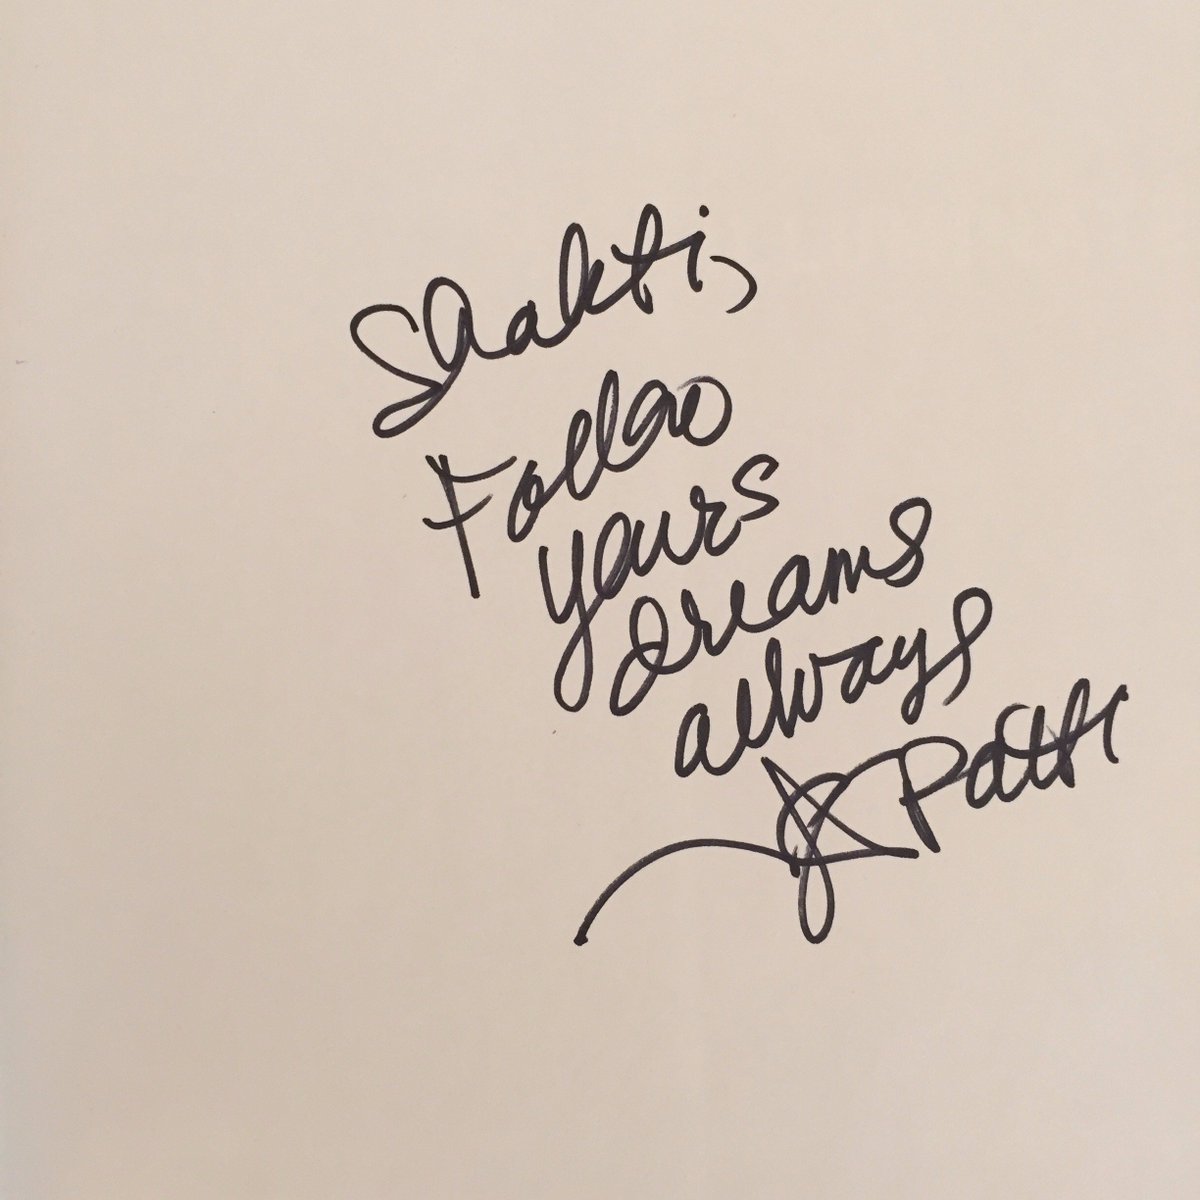 Shakti,
Follow
yours
dreams
always
Patti